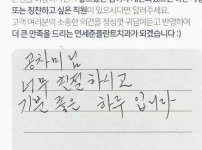 또는 칭찬하고 싶은 직원이 있으시다면 알려주세요.
고객 여러분의 소중한 의견을 정성껏 귀담아듣고 반영하여
더 큰 만족을 드리는 연세준플란트치과가 되겠습니다 :)
공차미님
너무 친절하시고
기분 좋은 하루입니다